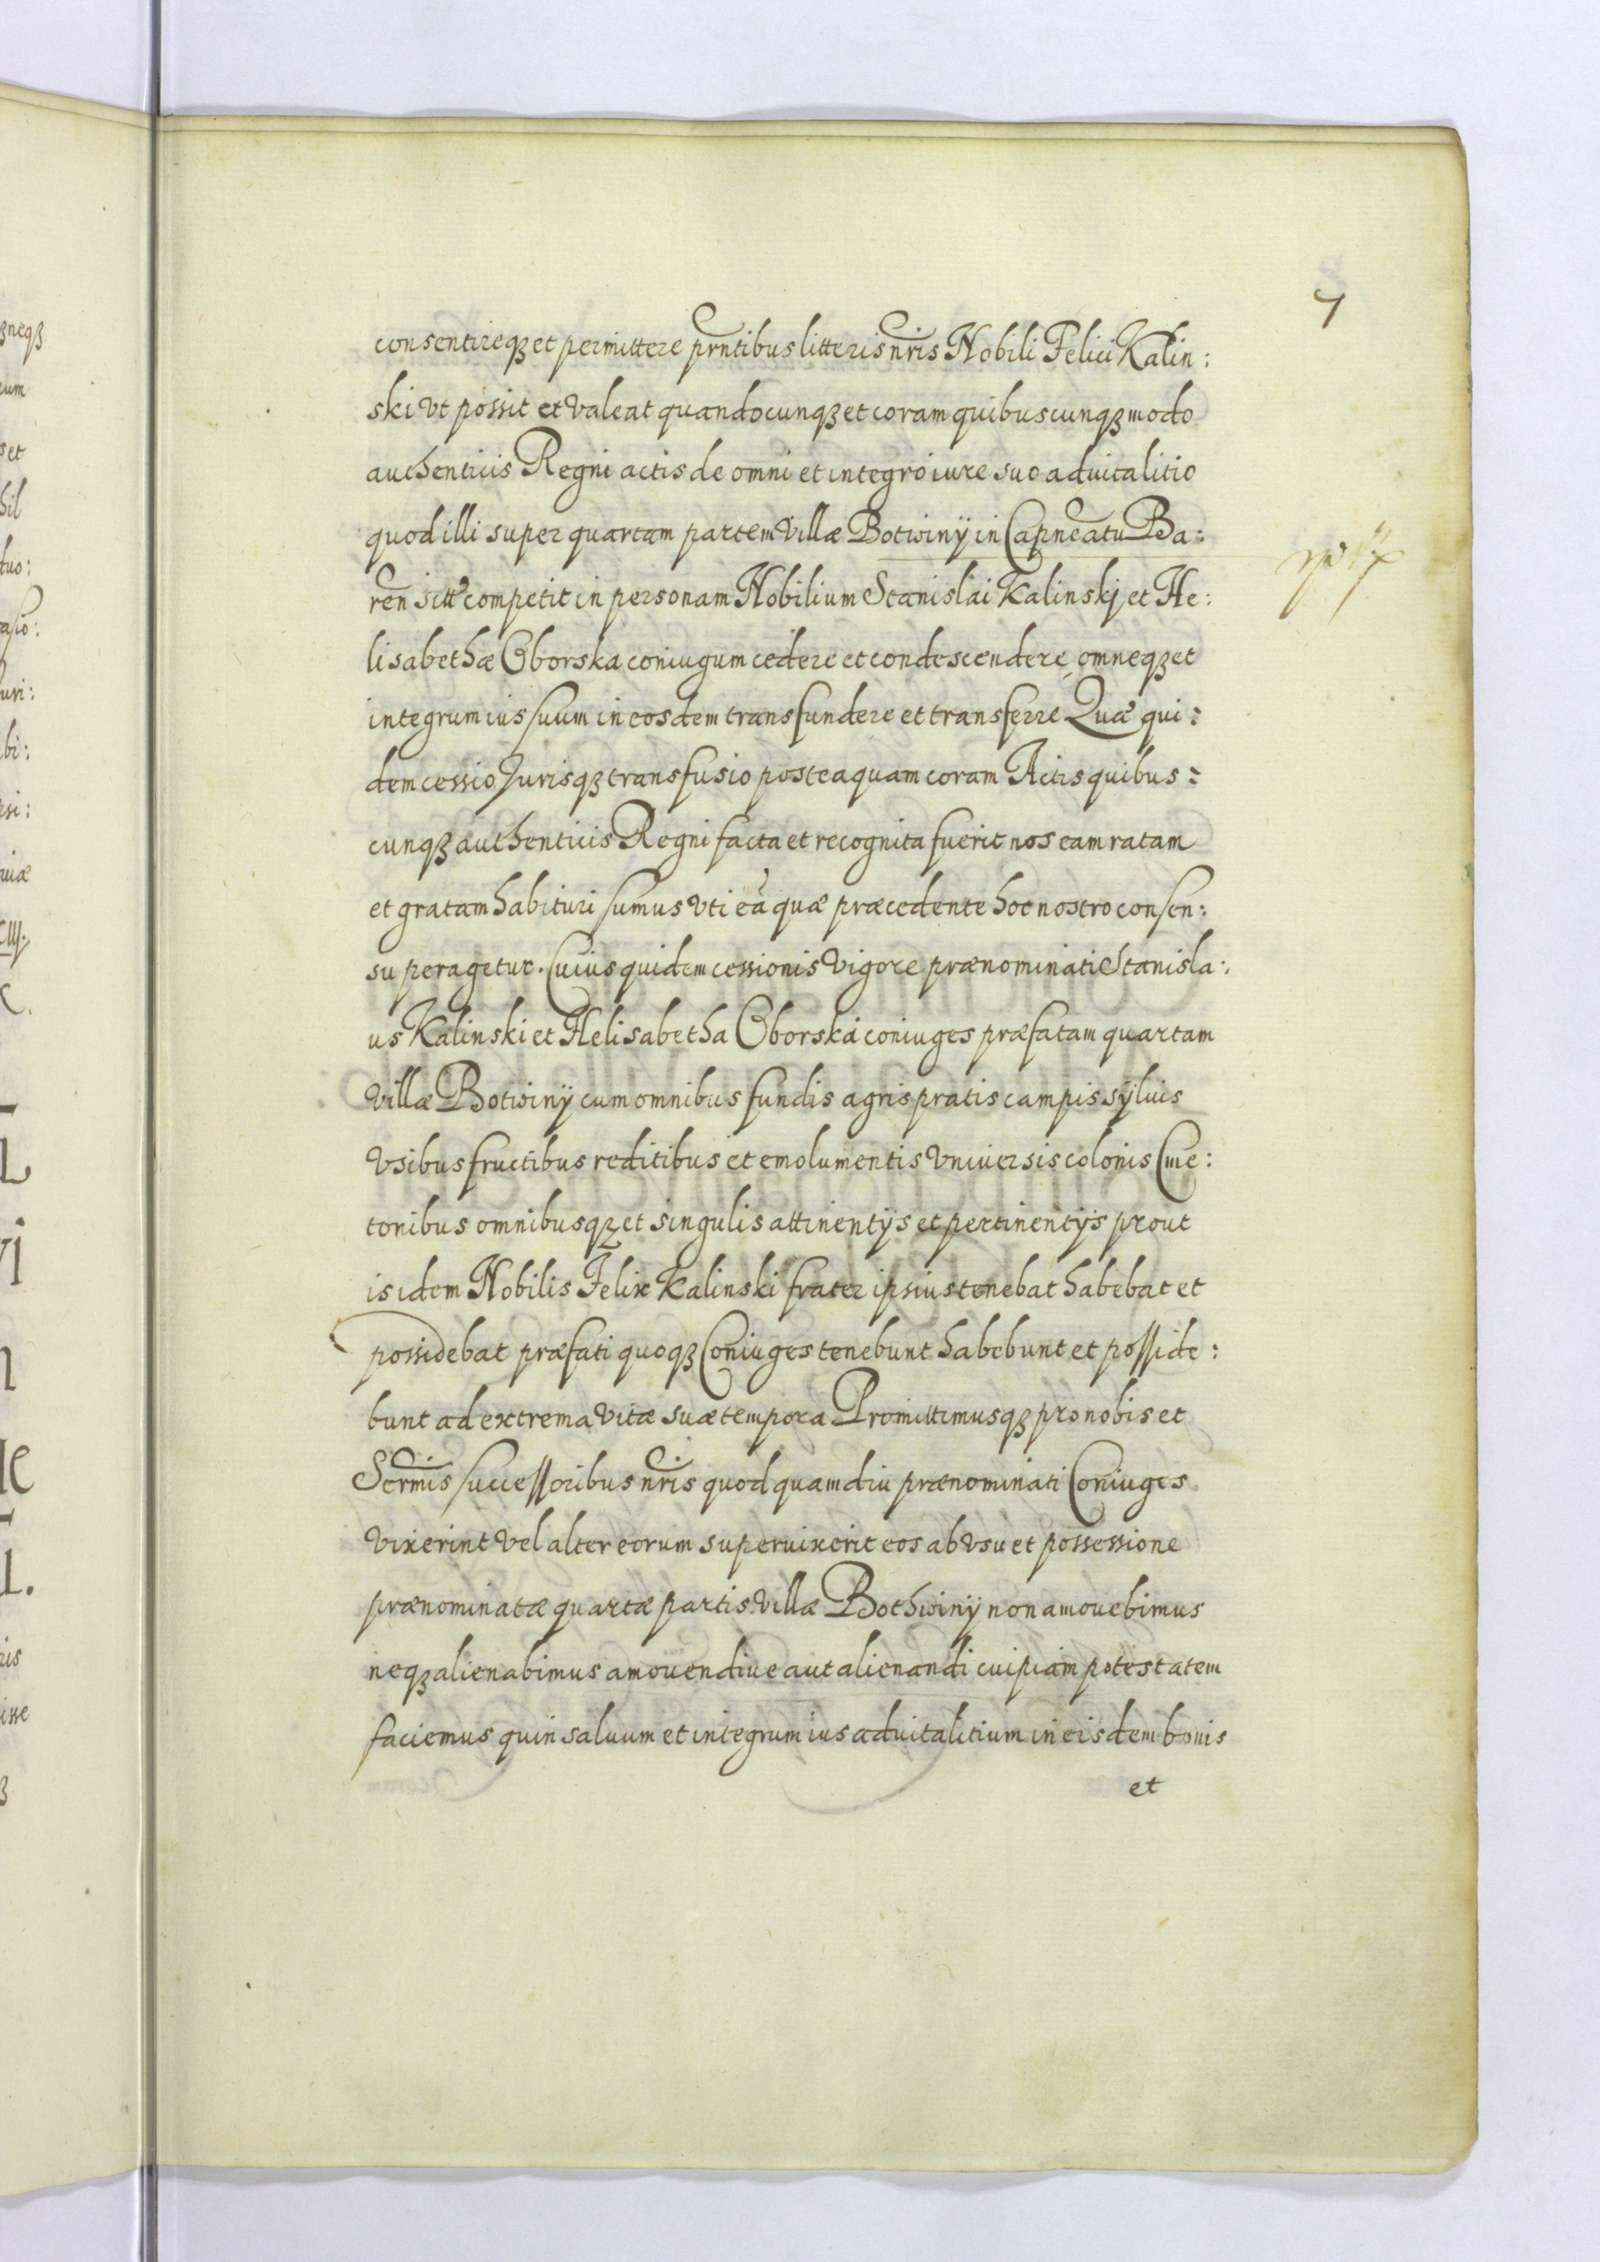 7
consentireqȝ et permittere prntibus litteris nris Nobili Felici Kalin:
ski vt possit et valeat quandocunqȝ et coram quibuscunqȝ modo
authenticis Regni actis de omni et integro iure suo aduitalitio
quod illi super quartam partem villæ Botwinÿ in Capneatu Ba:
ren sitt competit in personam Nobilium Stanislai Kalinskj et He:
lisabethæ Oborska coniugum cedere et condescendere, omneqȝ et
integrum ius suum in eosdem transfundere et transferre Quæ qui:
dem cessio Jurisqȝ transfusio posteaquam coram Actis quibus:
cunqȝ authenticis Regni facta et recognita fuerit nos eam ratam
et gratam habituri sumus vti eà quæ præcedente hoc nostro consen:
su peragetur. Cuius quidem cessionis vigore prænominati Stanisla:
us Kalinski et Helisabetha Oborska coniuges præfatam quartam
villæ Botwinÿ cum omnibus fundis agris pratis campis sÿluis
vsibus fructibus reditibus et emolumentis vniuersis colonis Cme:
tonibus omnibusqȝ et singulis attinentÿs et pertinentÿs prout
is idem Nobilis Felix Kalinski frater ipsius tenebat habebat et
possidebat præfati quoqȝ Coniuges tenebunt habebunt et posside:
bunt ad extrema vitæ suæ tempora Promittimusqȝ pro nobis et
Sermis successoribus nris quod quamdiu prænominati Coniuges
vixerint vel alter eorum superuixerit eos ab vsu et possessione
prænominatæ quartæ partis villæ Bothwinÿ non amouebimus
neqȝ alienabimus amouendiue aut alienandi cuipiam potestatem
faciemus quin saluum et integrum ius aduitalitium in eisdem bonis
et